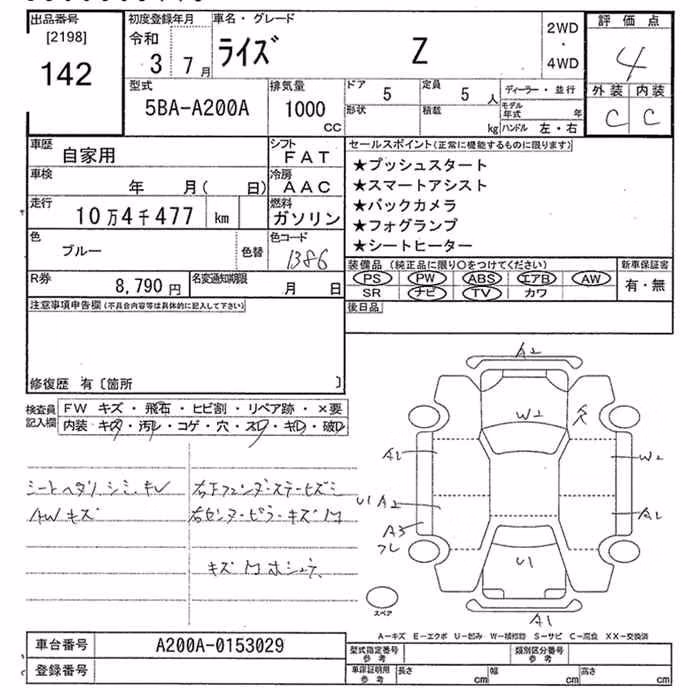 出品番号 [2198] 142
初度登録年月 令和 3 7月
車名・グレード ライズ Z
2WD ・ 4WD
評価点 4
外装 内装
C C
型式 5BA-A200A
排気量 1000 CC
ドア 5 定員 5 人
形状 積載 kg
ディーラー・並行
モデル年式 年
ハンドル 左・右
車歴 自家用
シフト FAT
車検 年 月( 日)
冷房 AAC
走行 10万4千477 km
燃料 ガソリン
色 ブルー 色替
色コード 1386
R券 8,790円
名変通知期限 月 日
セールスポイント(正常に機能するものに限ります)
★プッシュスタート
★スマートアシスト
★バックカメラ
★フォグランプ
★シートヒーター
装備品(純正品に限り○をつけてください)
新車保証書
PS PW ABS エアB AW
SR ナビ TV カワ
有・無
後日品
注意事項申告欄(不具合内容等は具体的に記入して下さい)
修復歴 有〔箇所 〕
検査員記入欄
FW キズ・飛石・ヒビ割・リペア跡・×要
内装・キズ・汚レ・コゲ・穴・スレ・キレ・破レ
シートヘタリ シミ、キレ
AWキズ
右センターピラーキズ
A2
W2
A1
W2
U1 A2
A1
A3
U1
A1
スペア
A-キズ E-エクボ U-凹み W-補修跡 S-サビ C-腐食 XX-交換済
車台番号 A200A-0153029
登録番号
型式指定番号 参考
類別区分番号 参考
車庫証明用 参考
長さ cm 幅 cm 高さ cm